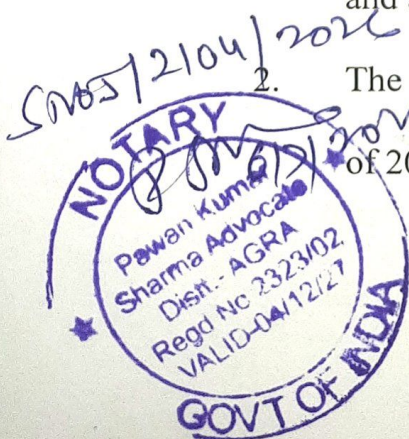 and
2/04/2026
2. The
of 20
NOTARY
Pawan Kumar
Sharma Advocate
Distt.- AGRA
Regd No 2323/02
VALID-04/12/27
GOVT OF INDIA